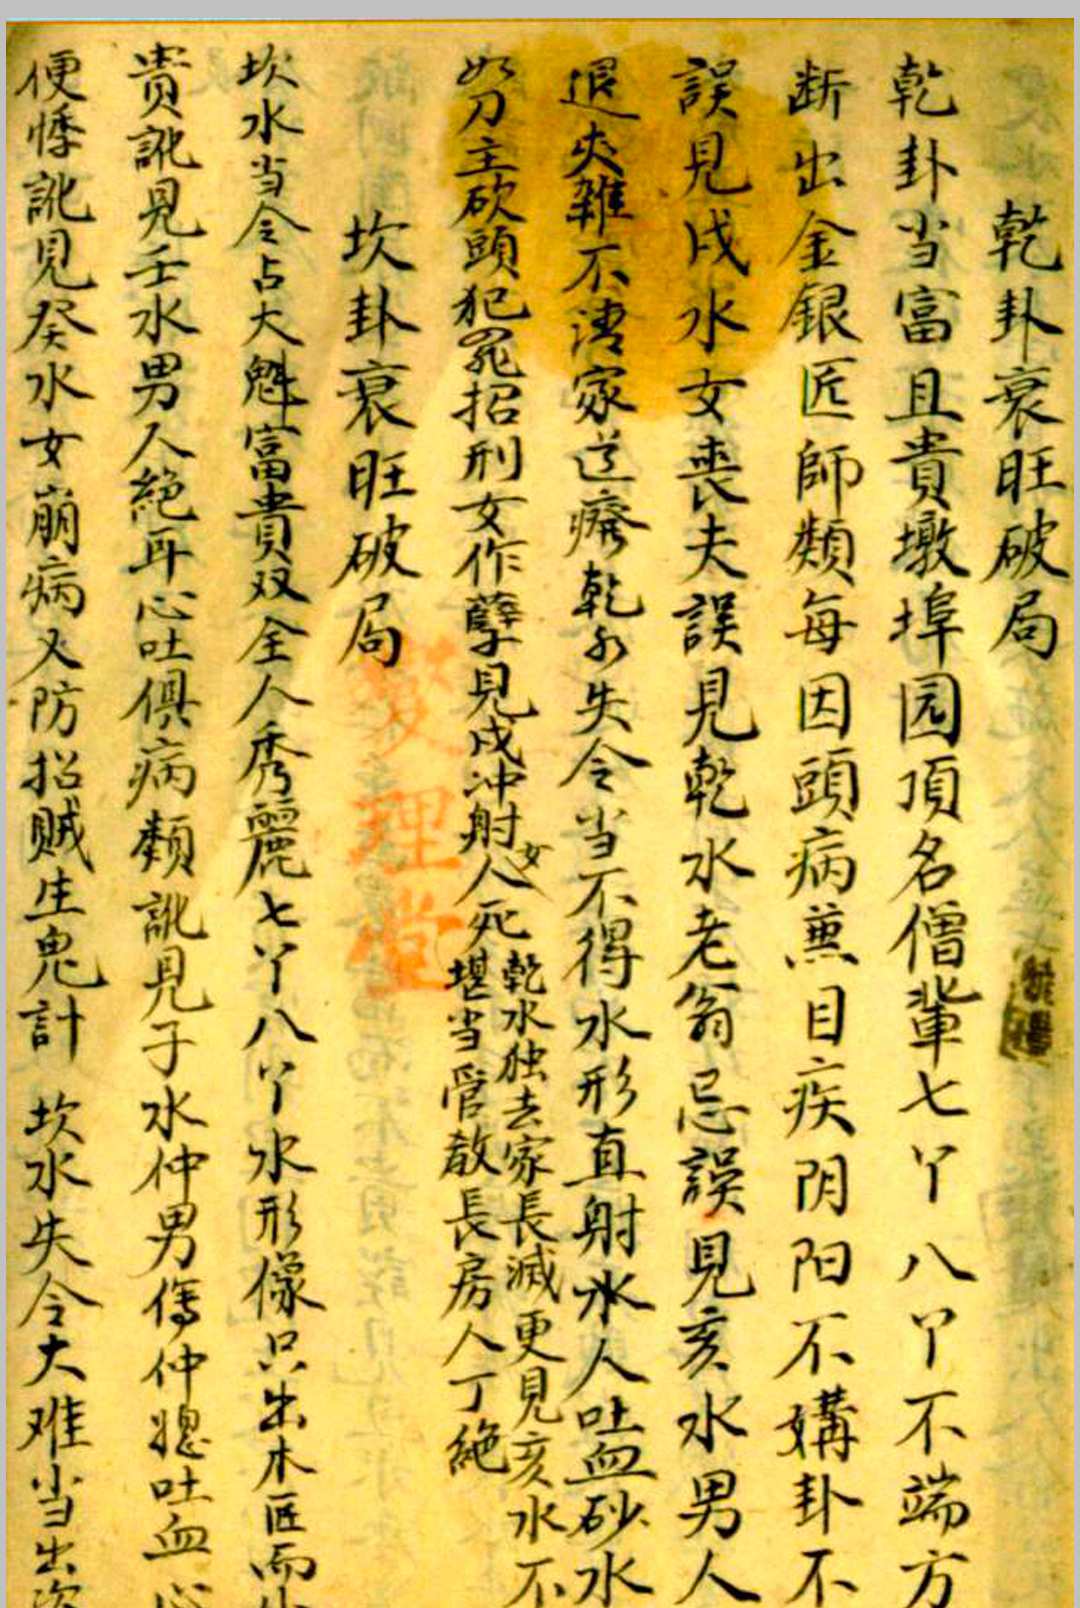 乾卦衰旺破局
乾卦当富且貴墩埠园頂名僧輩七丫八丫不端方
断出金銀匠師類每因頭病蔗目疾阴阳不媾卦不
誤見戌水女喪夫誤見乾水老翁忌誤見亥水男人
退夾雜不清家道癆乾水失令当不得水形直射水人吐血砂水
如刀主砍頭犯罪招刑女作孽見戌冲射女人死
乾水独去家長滅更見亥水不
堪当管教長房人丁絕
坎卦衰旺破局
坎水当令占大魁富貴双全人秀麗七丫八丫水形像只出木匠而
貴訛見壬水男人絕耳心吐俱病類訛見子水仲男傷仲媳吐血心
便悸訛見癸水女崩病又防招贼生鬼計 坎水失令大难当出
敬理堂